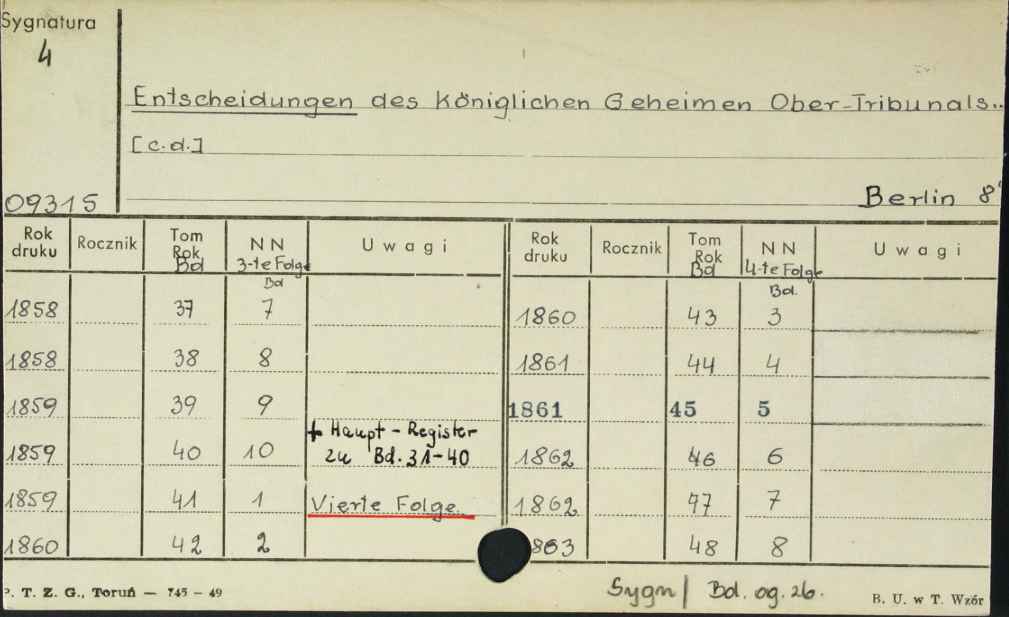 Sygnatura
4
Entscheidungen des Königlichen Geheimen Ober-Tribunals..
[c.d.]
09315
Berlin 8°
Rok druku Rocznik Tom Rok Bd NN 3-te Folge Bd Uwagi Rok druku Rocznik Tom Rok Bd NN 4-te Folge Bd. Uwagi
1858 37 7 1860 43 3
1858 38 8 1861 44 4
1859 39 9 1861 45 5
1859 40 10 + Haupt-Register zu Bd. 31-40 1862 46 6
1859 41 1 Vierte Folge. 1862 47 7
1860 42 2 1863 48 8
P. T. Z. G., Toruń — 745 - 49
Sygn| Bd. og. 26.
B. U. w T. Wzór